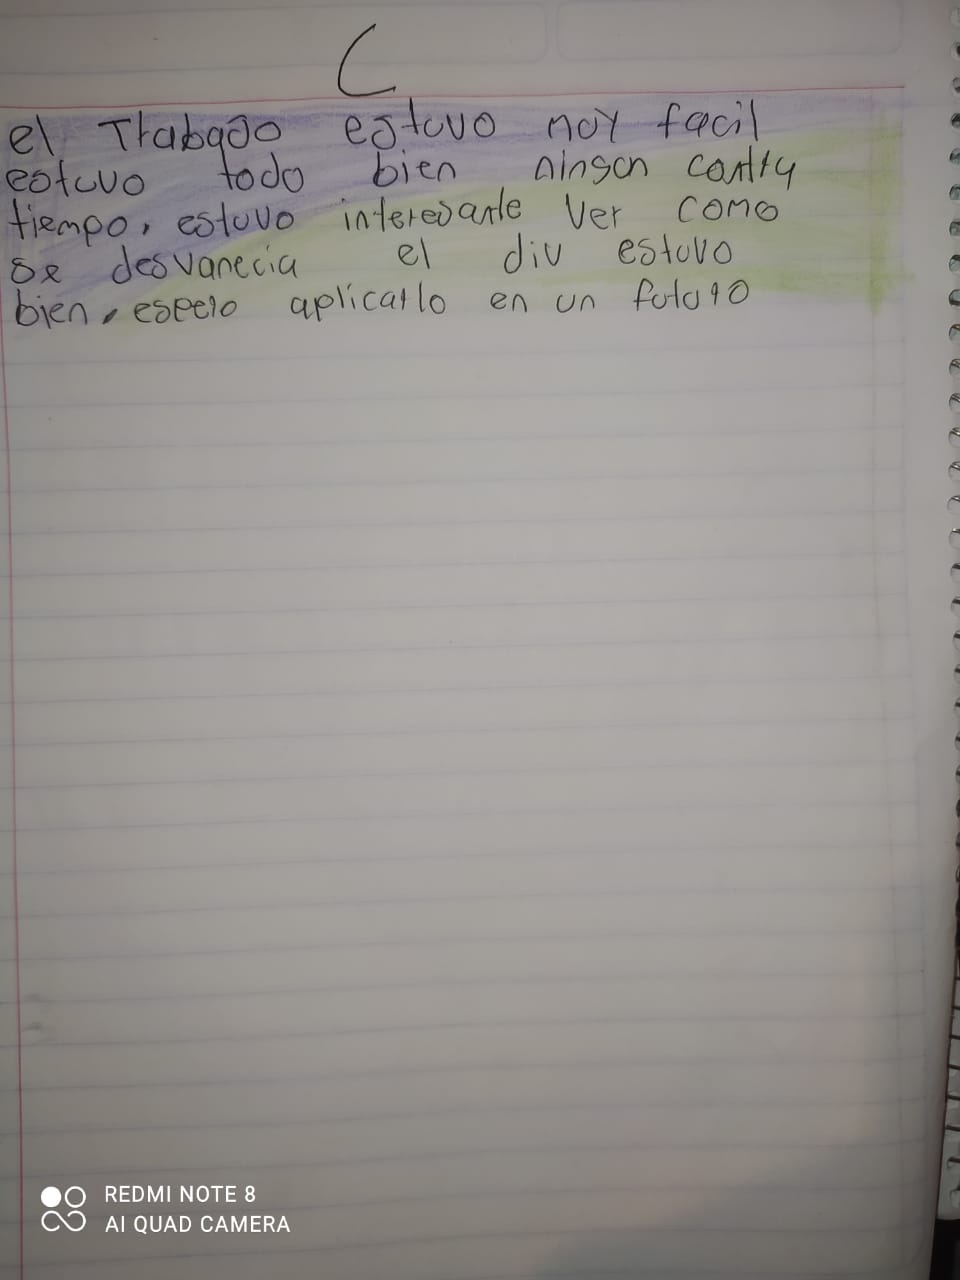 C
el Trabajo estuvo muy facil
estuvo todo bien ningun contra
tiempo, estuvo interesante ver como
se desvanecia el div estuvo
bien, espero aplicarlo en un futuro
REDMI NOTE 8
AI QUAD CAMERA